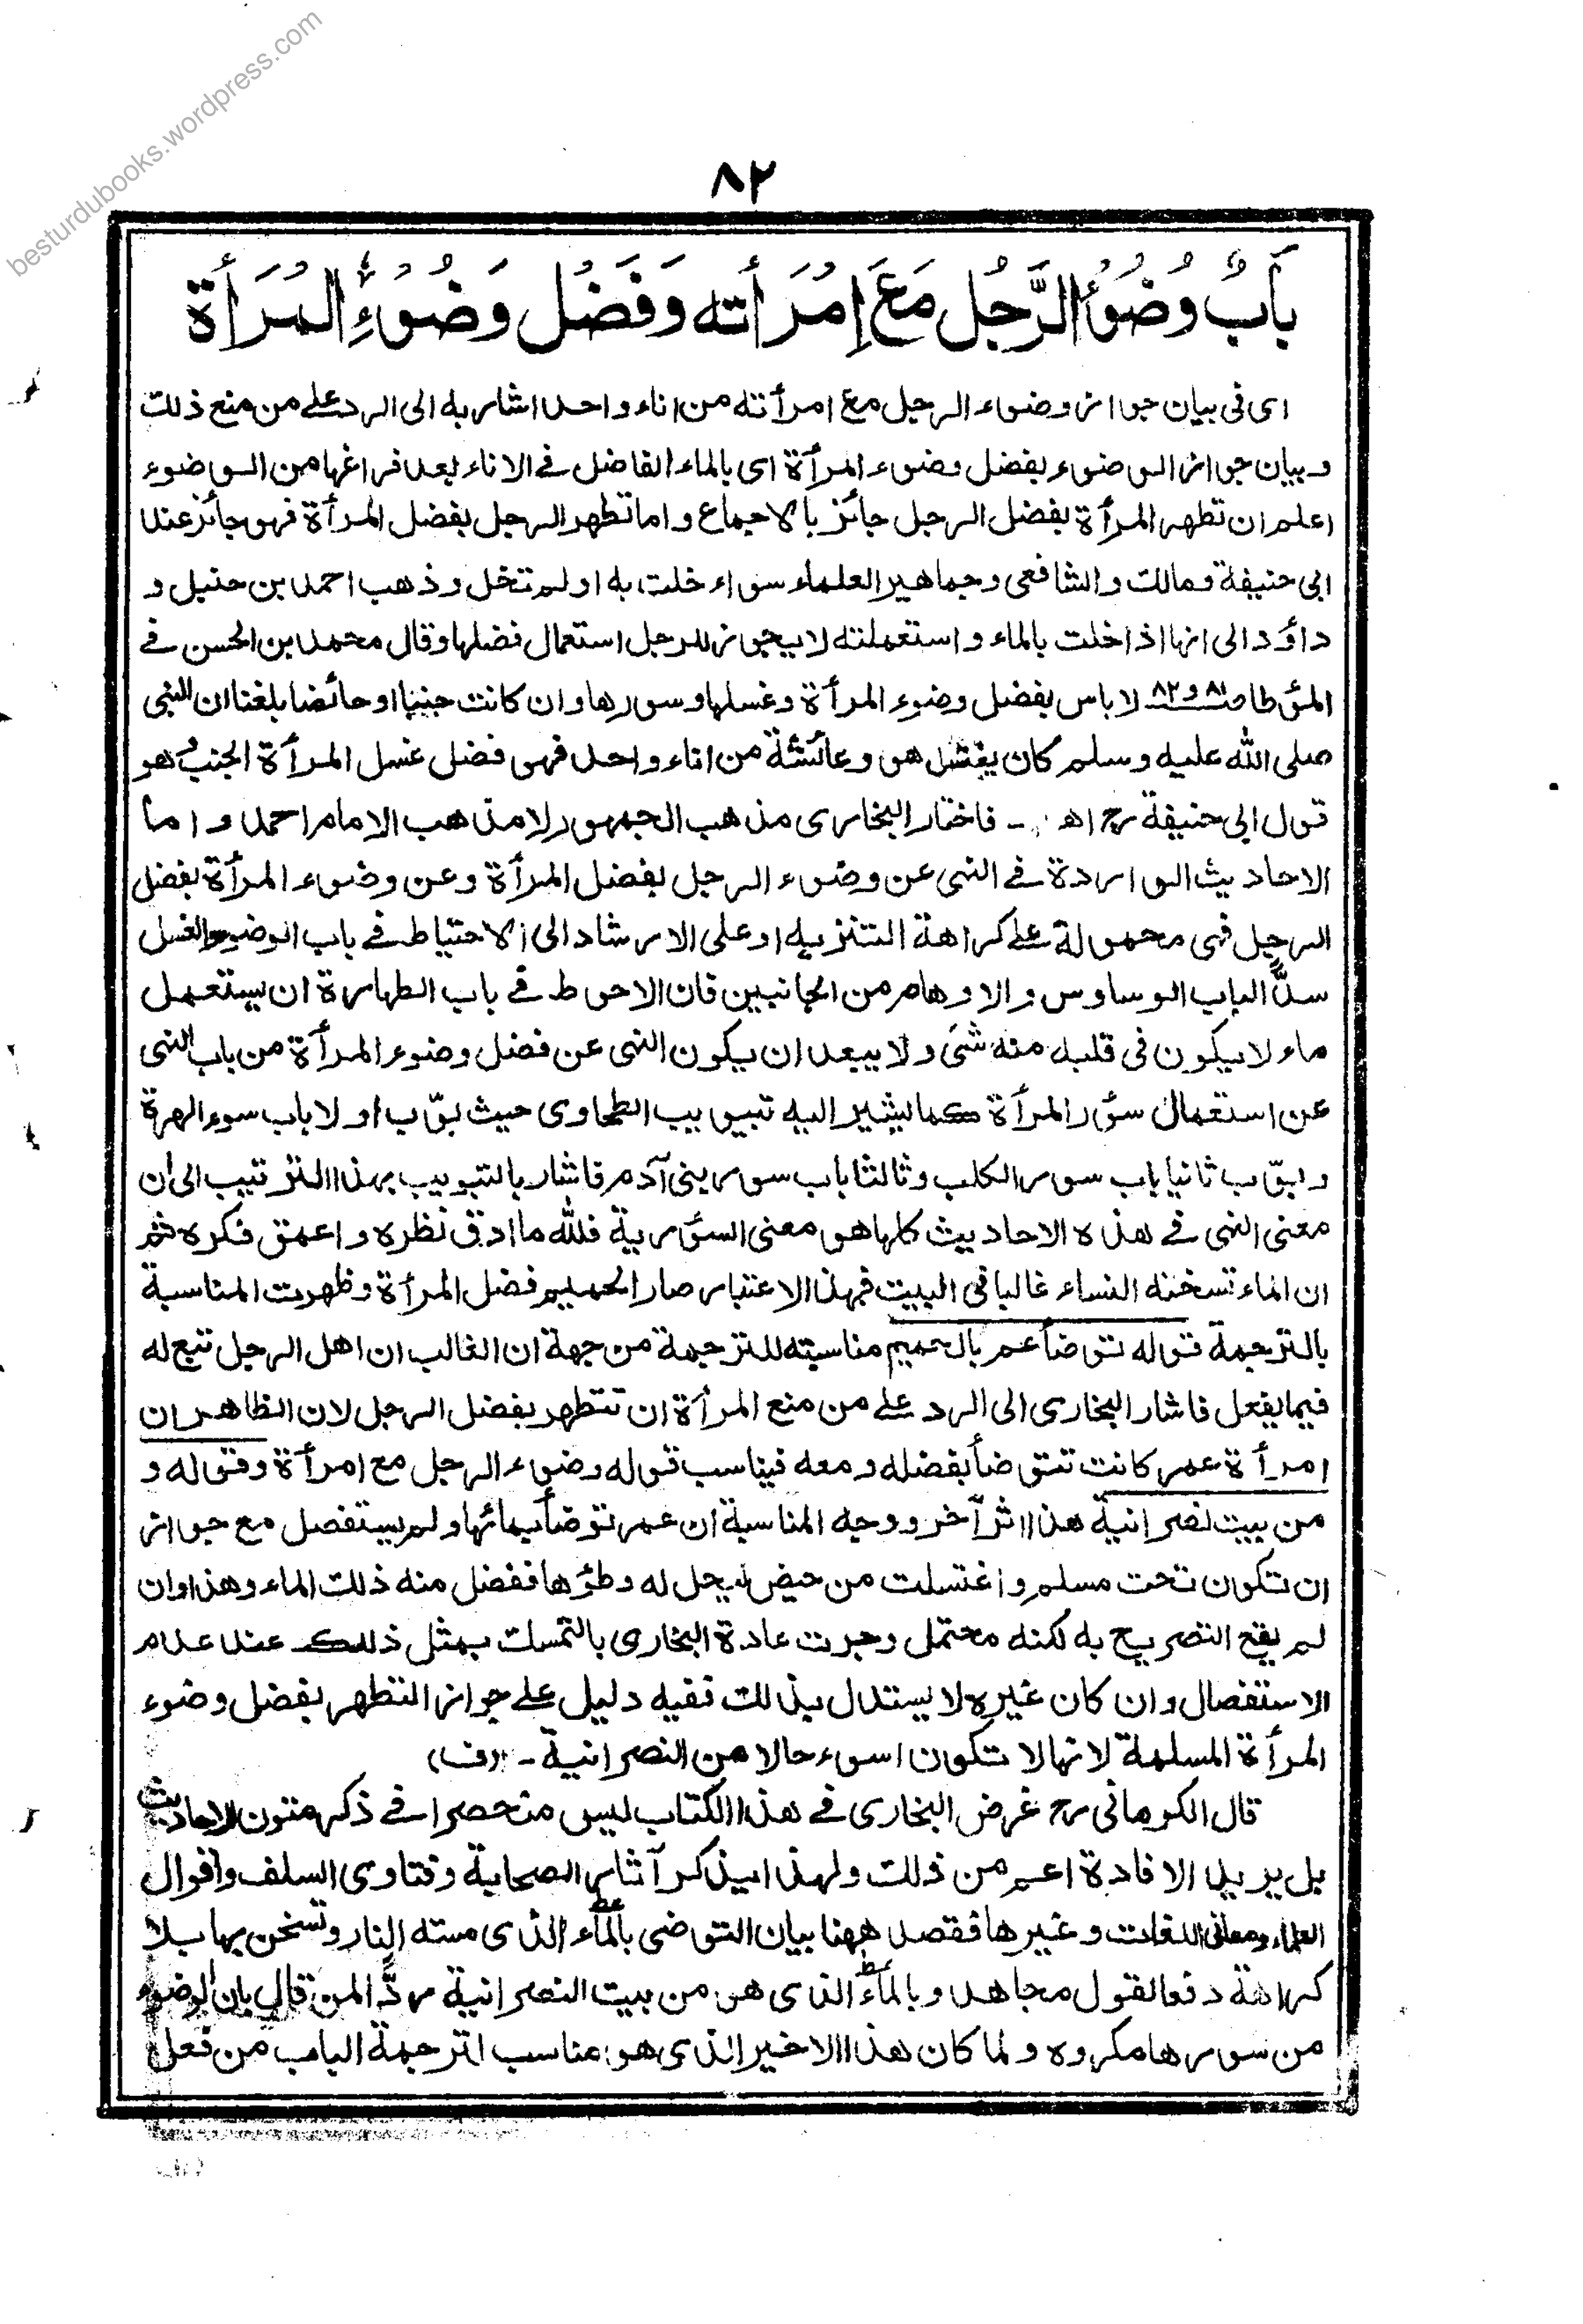 besturdubooks.wordpress.com
٨٢
بَابُ وُضُوْءُ الرَّجُلِ مَعَ اِمْرَأَته وَفَضْل وَضُوْءِ الْمَرْأَة
اى فى بيان جواز وضوء الرجل مع امرأته من اناء واحد اشار به الى الرد على من منع ذلك
وبيان جواز الوضوء بفضل وضوء المرأة اى بالماء الفاضل فى الاناء بعد فراغها من الوضوء
اعلم ان تطهر المرأة بفضل الرجل جائز بالاجماع واما تطهر الرجل بفضل المرأة فهو جائز عند
ابى حنيفة ومالك والشافعى وجماهير العلماء سواء خلت به او لم تخل وذهب احمد بن حنبل و
داؤد الى انها اذا خلت بالماء واستعملته لا يجوز للرجل استعمال فضلها وقال محمد بن الحسن فى
المؤطا صـ٨١ و ٨٢ لا باس بفضل وضوء المرأة وغسلها وسورها وان كانت جنبا او حائضا بلغنا ان النبى
صلى الله عليه وسلم كان يغتسل هو وعائشة من اناء واحد فهو فضل غسل المرأة الجنب وهو
قول ابى حنيفة رح اھ ـ فاختار البخارى مذهب الجمهور لا مذهب الامام احمد و اما
الاحاديث الواردة فى النهى عن وضوء الرجل بفضل المرأة وعن وضوء المرأة بفضل
الرجل فهى محمولة على كراهة التنزيه او على الارشاد الى الاحتياط فى باب الوضوء والغسل
سدًّا لباب الوساوس والاوهام من الجانبين فان الاحوط فى باب الطهارة ان يستعمل
ماء لا يكون فى قلبه منه شئ ولا يبعد ان يكون النهى عن فضل وضوء المرأة من باب النهى
عن استعمال سؤر المرأة كما يشير اليه تبويب الطحاوى حيث بوّب اولا باب سوء الهرة
وبوّب ثانيا باب سور الكلب وثالثا باب سور بنى آدم فاشار بالتبويب بهذا الترتيب الى ان
معنى النهى فى هذه الاحاديث كلها هو معنى السؤرية فلله ما ادق نظره واعمق فكره ثم
ان الماء تسخنه النساء غالبا فى البيت فبهذا الاعتبار صار الحميم فضل المرأة وظهرت المناسبة
بالترجمة قوله توضأ عمر بالحميم مناسبته للترجمة من جهة ان الغالب ان اهل الرجل تبع له
فيما يفعل فاشار البخارى الى الرد على من منع المرأة ان تتطهر بفضل الرجل لان الظاهر ان
امرأة عمر كانت تتوضأ بفضله ومعه فيناسب قوله وضوء الرجل مع امرأة وقوله و
من بيت نصرانية هذا اثر آخر ووجه المناسبة ان عمر توضأ بمائها ولم يستفصل مع جواز
ان تكون تحت مسلم واغتسلت من حيض ليحل له وطؤها ففضل منه ذلك الماء وهذا وان
لم يقع التصريح به لكنه محتمل وجرت عادة البخارى بالتمسك بمثل ذلك عند عدم
الاستفصال وان كان غيره لا يستدل بذلك ففيه دليل على جواز التطهر بفضل وضوء
المرأة المسلمة لانها لا تكون اسوء حالا من النصرانية ـ (ف)
قال الكرمانى رح غرض البخارى فى هذا الكتاب ليس منحصرا فى ذكر متون الاحاديث
بل يريد الافادة اعم من ذلك ولهذا يذكر آثار الصحابة وفتاوى السلف واقوال
العلماء ومعانى اللغات وغيرها فقصد ههنا بيان التوضى بالماء الذى مسته النار وتسخن بها بلا
كراهة دفعا لقول مجاهد وبالماء الذى هو من بيت النصرانية ردًّا لمن قال بان الوضوء
من سورها مكروه ولما كان هذا الاخير الذى هو مناسب لترجمة الباب من فعل